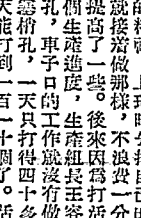 就接着做那樣，不浪費一分
提高了一些。後來因爲打活
個生產進度，生產組長王容
孔，車子口的工作就沒有做
塞梢孔，一天只打得四十多
天能打到一百一十個了。活